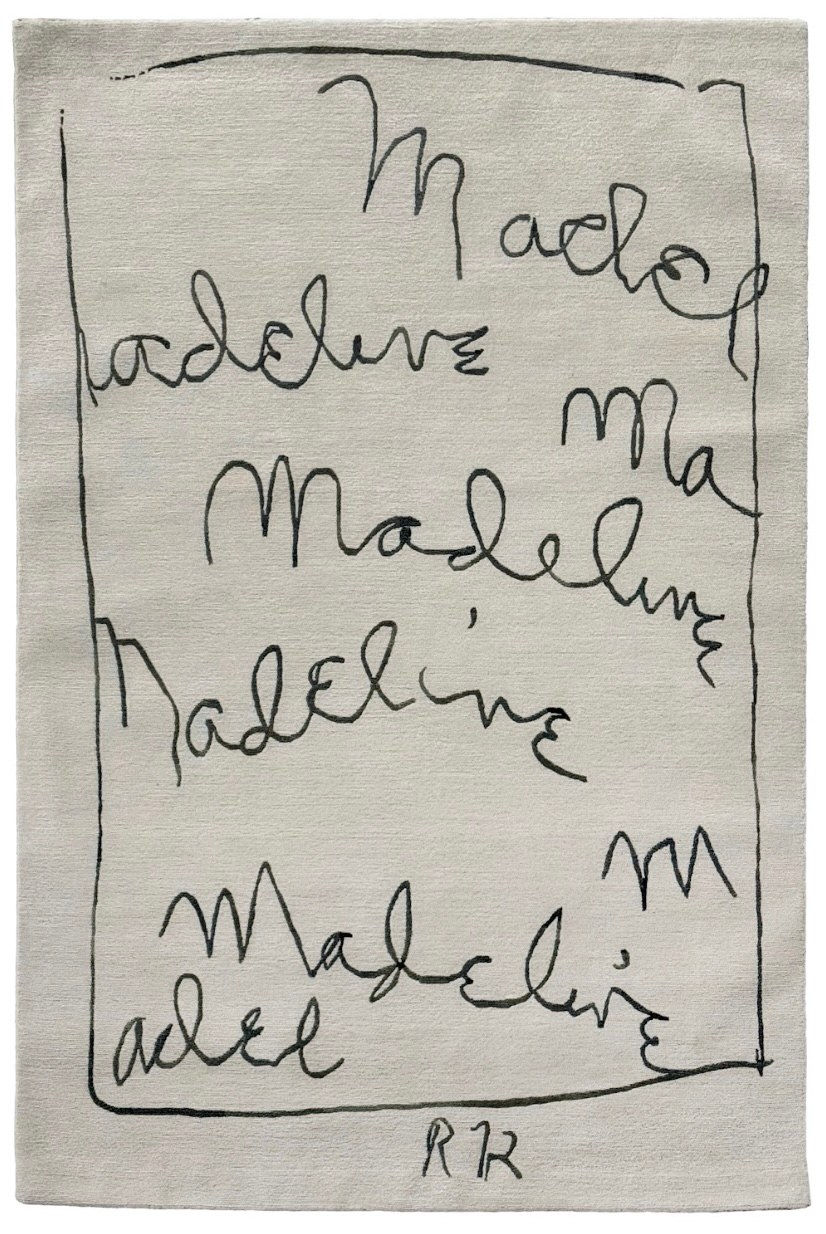 Madel
adeline
Ma
Madeline
Madeline
M
Madeline
adel
RK